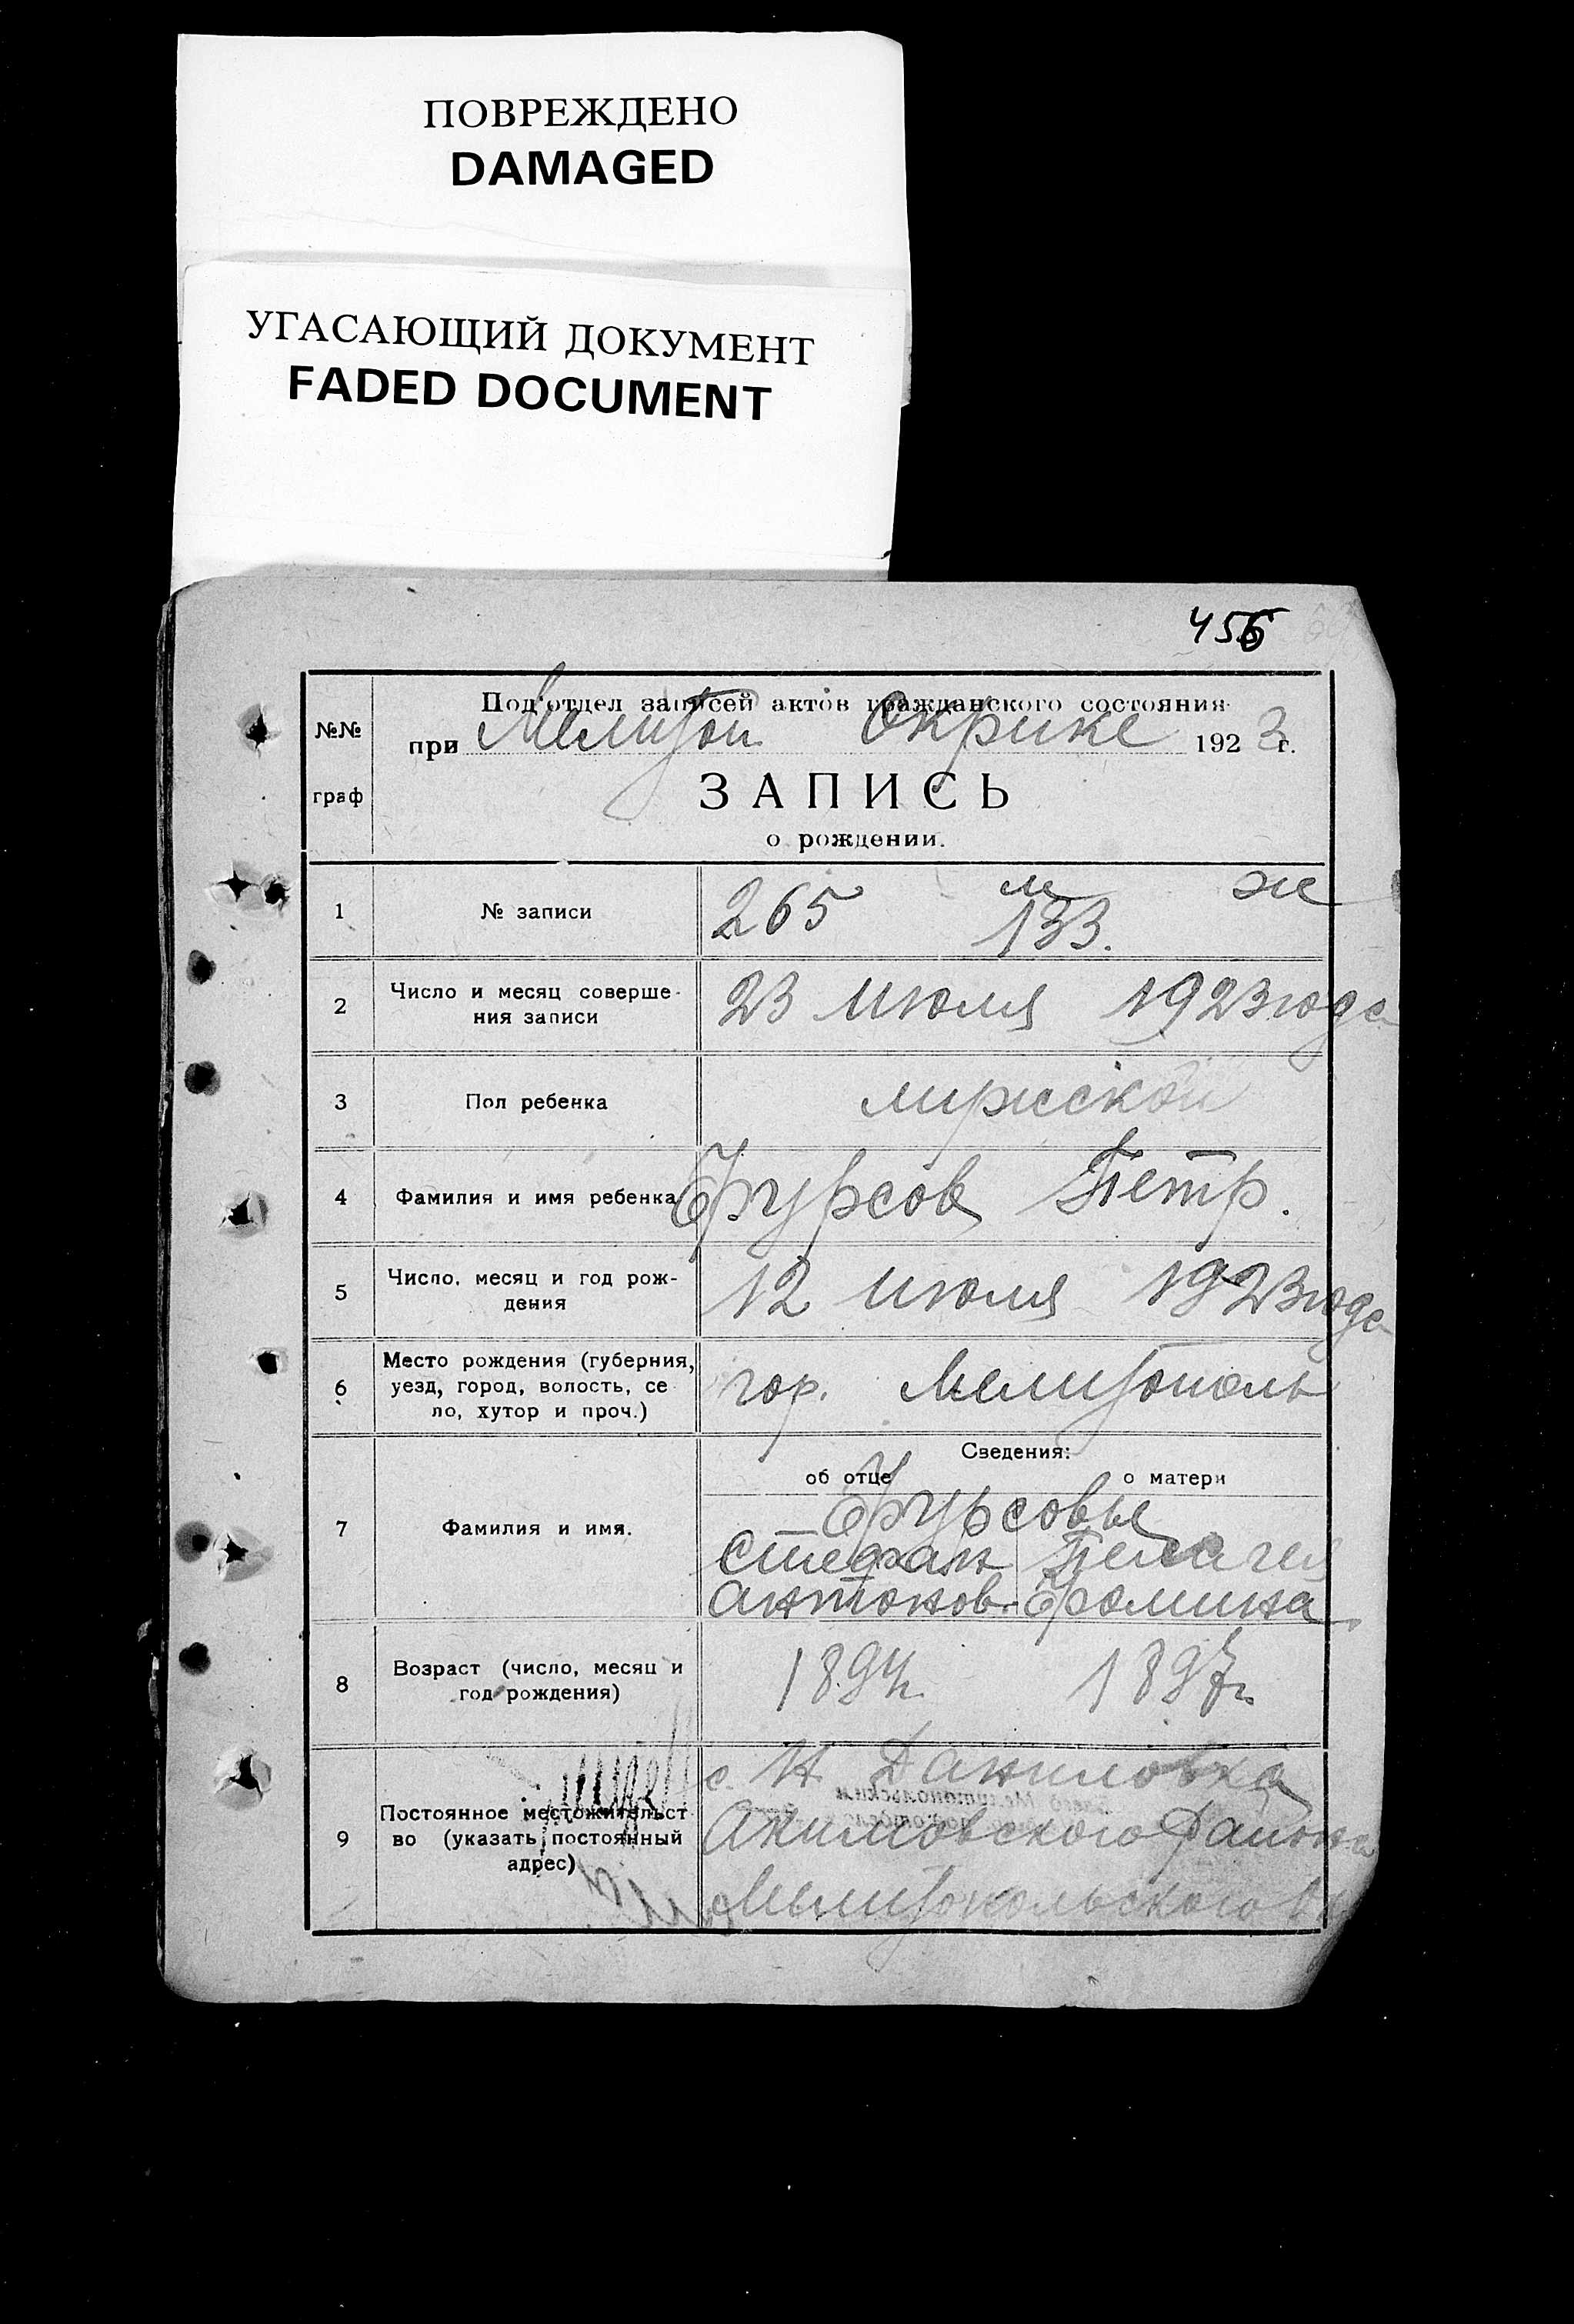 ПОВРЕЖДЕНО
DAMAGED
УГАСАЮЩИЙ ДОКУМЕНТ
FADED DOCUMENT
456
№№
граф
Под'отдел записей актов гражданского состояния
при Мелитоп Окрике 1923 г.
ЗАПИСЬ
о рождении.
1 № записи 265 м 133. ж
2 Число и месяц соверше-
ния записи 23 июля 1923 года
3 Пол ребенка мужской
4 Фамилия и имя ребенка Фурсов Петр.
5 Число, месяц и год рож-
дения 12 июля 1923 года
6 Место рождения (губерния,
уезд, город, волость, се
ло, хутор и проч.) гор. Мелитополь
Сведения:
об отце о матери
7 Фамилия и имя. Фурсовы
Стефан Пелагея
Антонов. Фомина
8 Возраст (число, месяц и
год рождения) 1894г. 1897г.
9 Постоянное местожительст
во (указать постоянный
адрес) с. Н Даниловка
Акимовского Района
Мелитопольского